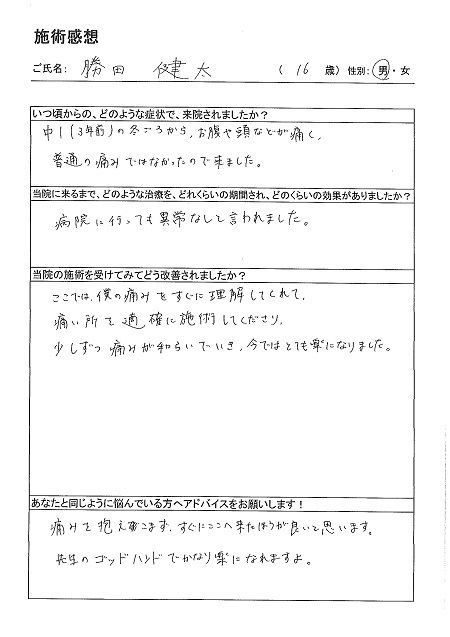 施術感想
ご氏名: 勝田 健太 ( 16 歳) 性別: 男・女
いつ頃からの、どのような症状で、来院されましたか？
中1(3年前)の冬ごろから、お腹や頭などが痛く、
普通の痛みではなかったので来ました。
当院に来るまで、どのような治療を、どれくらいの期間され、どのくらいの効果がありましたか？
病院に行っても異常なしと言われました。
当院の施術を受けてみてどう改善されましたか？
ここでは、僕の痛みをすぐに理解してくれて、
痛い所を適確に施術してくださり、
少しずつ痛みが和らいでいき、今ではとても楽になりました。
あなたと同じように悩んでいる方へアドバイスをお願いします！
痛みを抱え込まず、すぐにここへ来たほうが良いと思います。
先生のゴッドハンドでかなり楽になれますよ。